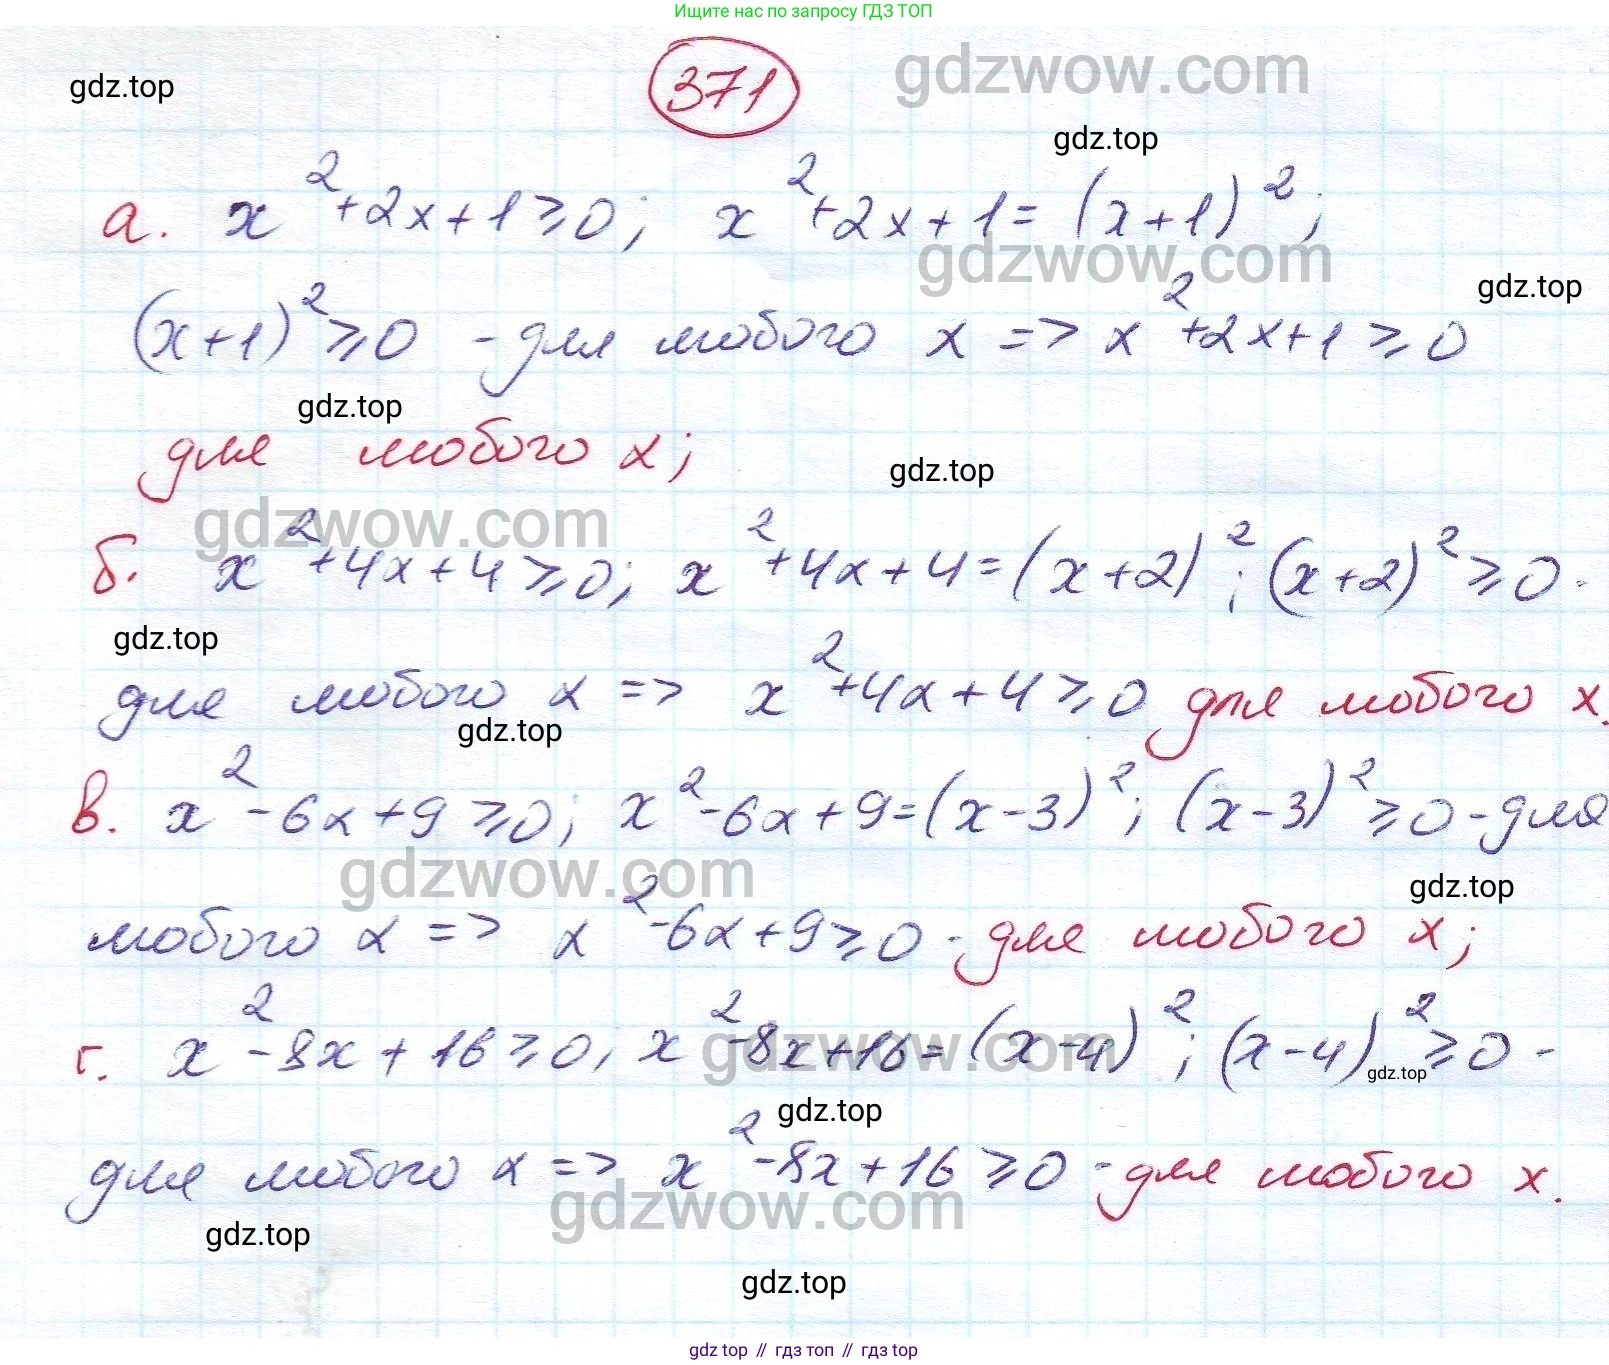 Ищите нас по запросу ГДЗ ТОП
371
gdzwow.com
gdz.top
gdz.top
а. x²+2x+1≥0; x²+2x+1=(x+1)²;
gdzwow.com
gdz.top
(x+1)²≥0 - для любого x => x²+2x+1≥0
gdz.top
для любого x;
gdz.top
gdzwow.com
б. x²+4x+4≥0; x²+4x+4=(x+2)²; (x+2)²≥0-
gdz.top
для любого x => x²+4x+4≥0 для любого x.
gdz.top
в. x²-6x+9≥0; x²-6x+9=(x-3)²; (x-3)²≥0-для
gdzwow.com
gdz.top
любого x => x²-6x+9≥0-для любого x;
г. x²-8x+16≥0; x²-8x+16=(x-4)²; (x-4)²≥0-
gdzwow.com
gdz.top
gdz.top
для любого x => x²-8x+16≥0-для любого x.
gdzwow.com
gdz.top
gdz.top
gdz top // гдз топ // гдз top